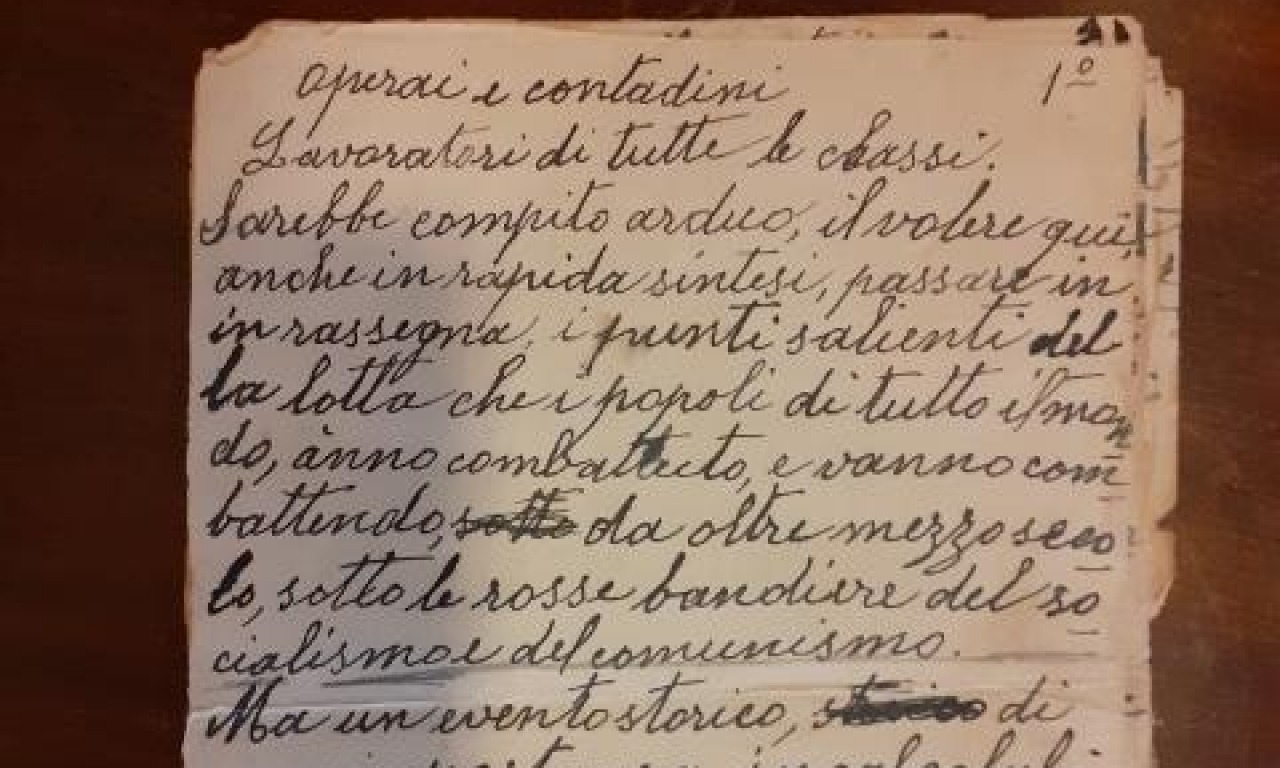 operai e contadini
1º
Lavoratori di tutte le classi.
Sarebbe compito arduo, il volere qui,
anche in rapida sintesi, passare in
in rassegna, i punti salienti del
la lotta che i popoli di tutto il mon
do, ànno combattuto, e vanno com
battendo, sotto da oltre mezzo seco
lo, sotto le rosse bandiere del so
cialismo e del comunismo.
Ma un evento storico, storico di